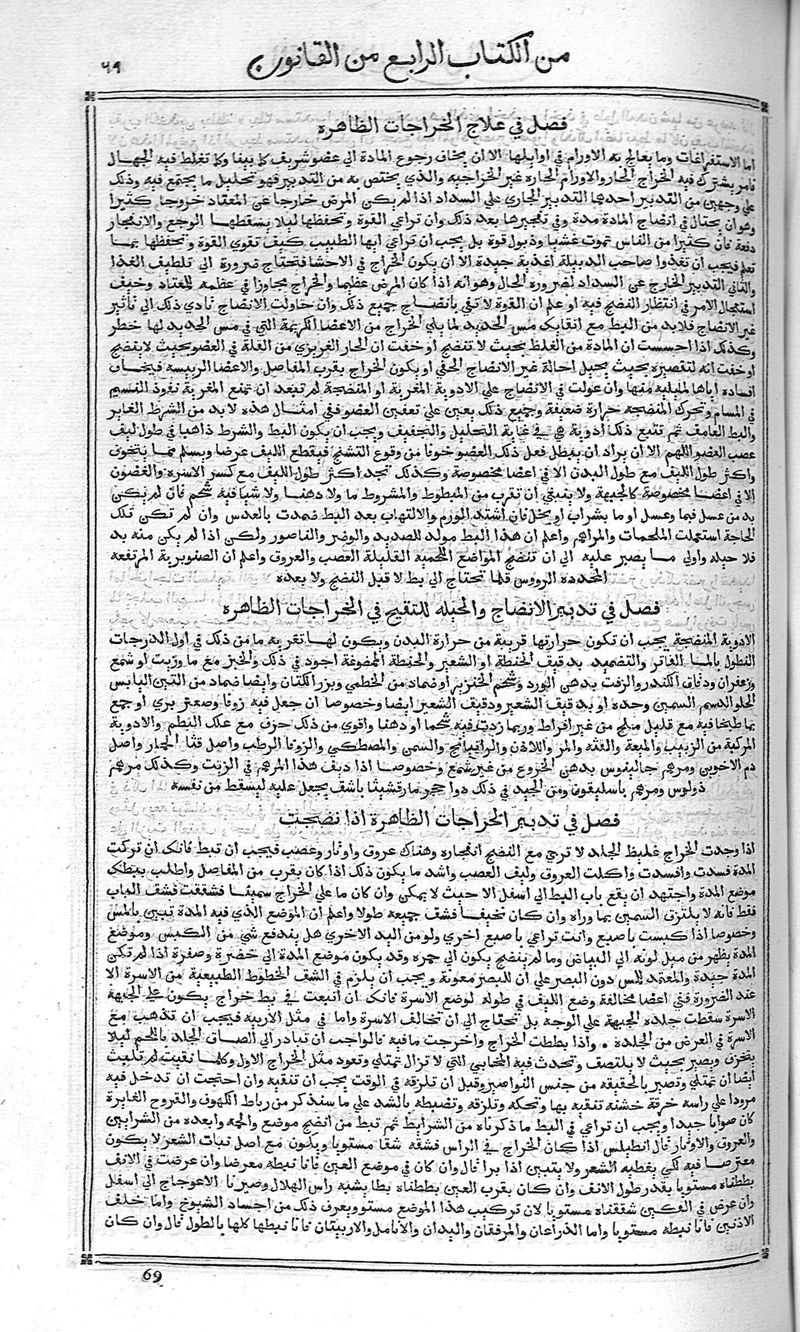 ٦٩
من الكتاب الرابع من القانون
فصل في علاج الخراجات الظاهرة
اما الاستفراغات وما يعالج به الاورام في اوايلها الا ان يخاف رجوع المادة الى عضو شريف كما بينا وكما تغلط فيه الجهال
فامر يشترك فيه الخراج الحار والاورام الحارة غير الخراجيه والذي يختص به من التدبير فهو تحليل ما يجتمع فيه وذلك
على وجهين من التدبير احدهما التدبير الجاري على السداد اذا لم يكن المرض خارجا عن المعتاد خروجا كثيرا
وهو ان يحتال في انضاج المادة مدة وفي تفجيرها بعد ذلك وان تراعي القوة وتحفظها ليلا يسقطها الوجع والانفجار
دفعة فان كثيرا من الناس تموت غشيا وذبول قوة بل يجب ان تراعي ايها الطبيب كيف تقوي القوة وتحفظها بما
تعلم فيجب ان تغذوا صاحب الدبيلة اغذية جيدة الا ان يكون الخراج في الاحشا فتحتاج ضرورة الى تلطيف الغذا
والثاني التدبير الخارج عن السداد لضرورة الحال وهو انه اذا كان المرض عظيما والخراج مجاوزا في عظمه للمعتاد وخيف
استعجال الامر في انتظار النضج فيه او علم ان القوة لا تفي بانضاج جميع ذلك وان حاولت الانضاج تادي ذلك الى تأثير
غير الانضاج فلا بد من البط مع اتقايك مس الحديد لما يلي الخراج من الاعضا الكريمة التي في مس الحديد لها خطر
وكذلك اذا احسست ان المادة من الغلظ بحيث لا تنضج او خفت ان الحار الغريزي من القلة في العضو بحيث لا ينضج
او خفت انه لتقصيره بحيث يحيل احالة غير الانضاج الحقي او يكون الخراج بقرب المفاصل والاعضا الرييسه فيخاف
افساده اياها لميله منها وان عولت في الانضاج على الادوية المغرية او المنضجة لم تبعد ان تمنع المغرية نفوذ النسيم
في المسام وتحرك المنضجة حرارة ضعيفة وجميع ذلك يعين على تعفين العضو ففي امثال هذه لا بد من الشرط الغاير
والبط العامق ثم تتبع ذلك أدوية هي في غاية التحليل والتجفيف ويجب ان يكون البط والشرط ذاهبا في طول ليف
عصب العضو اللهم الا ان يراد ان يبطل فعل ذلك العضو خوفا من وقوع التشنج فيقطع الليف عرضا ويسلم مما يتخوف
واكثر طول الليف مع طول البدن الا في اعضا مخصوصة وكذلك تجد اكثر طول الليف مع كسر الاسره والغضون
الا في اعضا مخصوصة كالجبهة ولا ينبغي ان تقرب من المبطوط والمشروط ما ولا دهنا ولا شيا فيه شحم فان لم يكن
بد من غسل فبما وعسل او ما بشراب او بخل فان اشتد الورم والالتهاب بعد البط ضمدت بالعدس وان لم تكن تلك
الحاجة استعملت الملحمات والمراهم واعلم ان هذا البط مولد للصديد والوضر والناصور ولكن اذا لم يكن منه بد
فلا حيله واولي ما يصير عليه الى ان تنضج المواضع اللحمية القليلة العصب والعروق واعلم ان الصنوبرية المرتفعه
المحددة الرووس قلما تحتاج الى بط لا قبل النضج ولا بعده
فصل في تدبير الانضاج والحيله للتقيح في الخراجات الظاهره
الادوية المنضجة يجب ان تكون حرارتها قريبة من حرارة البدن ويكون لها تغرية ما من ذلك في اول الدرجات
النطول بالما الفاتر والتضميد بدقيق الحنطة او الشعير والحنطة الممضوغة اجود في ذلك والخبز مع ما وزيت او شمع
وزعفران ودقاق الكندر والزفت بدهن الورد وشحم الخنزير او ضماد من الخطمي وبزر الكتان وايضا ضماد من التين اليابس
الحلو الدسم السمين وحده او بدقيق الشعير ودقيق الشعير ايضا وخصوصا ان جعل فيه زوفا وصعتر بري او جمع
بما طبخا فيه مع قليل ملح من غير افراط وربما زدت فيه شحما او دهنا واقوي من ذلك حرف مع علك البطم والادوية
المركبة من الزبيب والميعة والقنه والمر واللاذن والراتيانج والسمن والمصطكي والزوفا الرطب واصل قثا الحمار واصل
دم الاخوين ومرهم جالينوس بدهن الخروع من غير شمع وخصوصا اذا ديف هذا المرهم في الزيت وكذلك مرهم
ذولوس ومرهم باسليقون ومن الجيد في ذلك دوا حجر مارقشيثا باشق يجعل عليه ليسقط من نفسه
فصل في تدبير الخراجات الظاهرة اذا نضجت
اذا وجدت الخراج غليظ الجلد لا ترجي مع النضج انفجاره وهناك عروق واوتار وعصب فيجب ان تبط فانك ان تركت
المدة فسدت وافسدت واكلت العروق وليف العصب واشد ما يكون ذلك اذا كان بقرب من المفاصل واطلب ببطك
موضع المدة واجتهد ان يقع باب البط الى اسفل الا حيث لا يمكن وان كان ما على الخراج سمينا فشققت فشق الباب
فقط فانه لا يلتزق السمين بما وراه وان كان نحيفا فشق جميعه طولا واعلم ان الموضع الذي فيه المدة تبين باللمس
وخصوصا اذا كبست باصبع وانت تراعي باصبع اخري ولو من اليد الاخري هل يندفع شي من الكبس وموضع
المدة يظهر من ميل لونه الى البياض وما لم ينضج يكون الى حمره وقد يكون موضع المدة الى خضرة وصفرة اذا لم تكن
المدة جيدة والمعتمد اللمس دون البصر على ان للبصر معونة ويجب ان يلزم في الشق الخطوط الطبيعية من الاسرة الا
عند الضرورة ففي اعضا مخالفة وضع الليف في طوله لوضع الاسرة فانك ان اتبعت في بط خراج يكون على الجبهة
الاسرة سقطت جلدة الجبهة على الوجه بل تحتاج الى ان تخالف الاسرة واما في مثل الأربيه فيجب ان تذهب مع
الاسرة في العرض من الجلدة ۰ واذا بططت الخراج واخرجت ما فيه فالواجب ان تبادر الى الصاق الجلد باللحم ليلا
يتخزف ويصير بحيث لا يلتصف وتحدث فيه المخابي التي لا تزال تمتلي وتعود مثل الخراج الاول وكلما نقيت لم تلبث
ايضا ان تمتلي وتصير بالحقيقه من جنس النواصير وقبل ان تلزقه في الوقت يجب ان تنقيه وان احتجت ان تدخل فيه
مرودا على راسه خرقة خشنه تنقيه بها وتحكه وتلزقه وتضبطه بالشد على ما سنذكر من رباط الكهوف والقروح الغايرة
كان صوابا جيدا ويجب ان تراعي في البط ما ذكرناه من الشرايط ثم تبط من انضج موضع والحه وابعده من الشرايين
والعروق والاوتار قال انطيلس اذا كان الخراج في الراس فشقه شقا مستويا ويكون مع اصل نبات الشعر لا يكون
معترضا فيه لكي يغطيه الشعر ولا يتبين اذا برا قال وان كان في موضع العين فانا نبطه معرضا وان عرضت في الانف
بططناه مستويا بقدر طول الانف وان كان بقرب العين بططناه بطا يشبه راس الهلال وصيرنا الاعوجاج الى اسفل
وان عرض في الفكين شققناه مستويا لان تركيب هذا الموضع مستو ويعرف ذلك من اجساد الشيوخ واما خلف
الاذنين فانا نبطه مستويا واما الذراعان والمرفقان واليدان والانامل والاربيتان فانا نبطها كلها بالطول قال وان كان
69